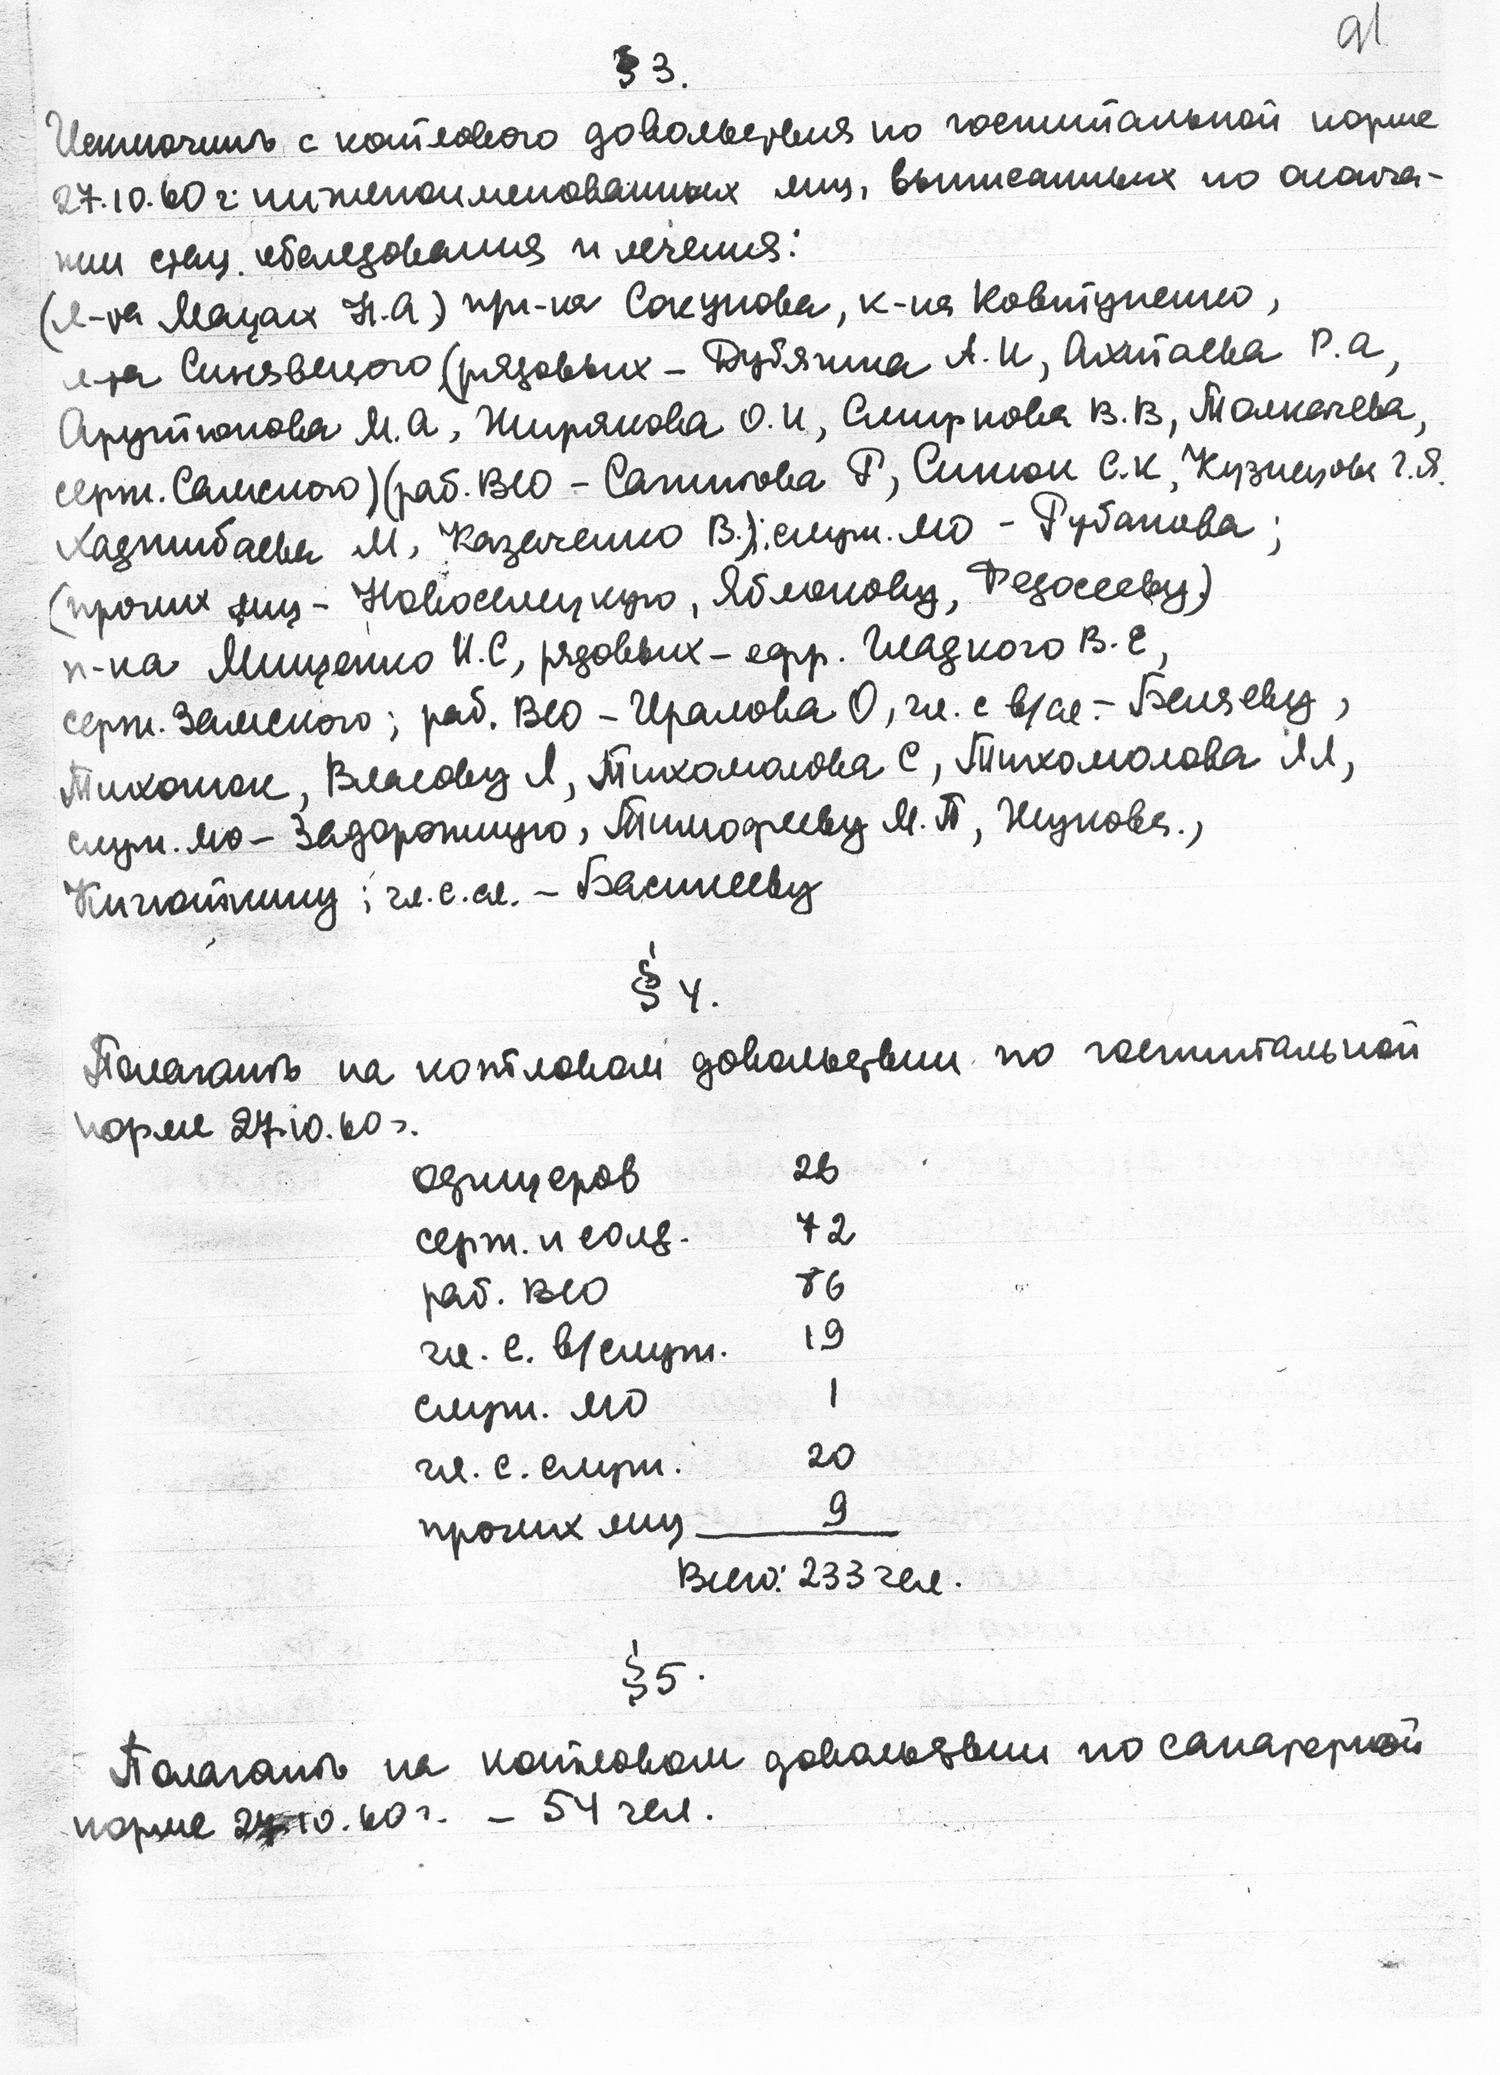 91
§ 3.
Исключить с котлового довольствия по госпитальной норме
27.10.60 г. нижепоименованных лиц, выписанных по оконча-
нии стац. обследования и лечения:
(л-та Мацах Н.А) пр-ка Сокунова, к-на Ковтуненко,
л-та Синявского (рядовых – Дубягина А.И, Ахтаева Р.А,
Арутюнова М.А, Жирякова О.И, Смирнова В.В, Толкачева,
серж. Самского) (раб. ВСО – Сагитова Г, Синюк С.К, Кузнецова Г.Я.
Хаджибаева М, Казаченко В.); служ. МО – Рубанова;
(прочих лиц – Новоселецкую, Яблокову, Федосееву)
п-ка Мищенко И.С, рядовых – ефр. Гладкого В.Е,
серж. Замского; раб. ВСО – Иралова О, чл. с в/сл. – Беляеву,
Тихонюк, Власову Л, Тихомолова С, Тихомолова Ял,
служ. МО – Задорожную, Тимофееву М.П, Жукова.,
Кичюткину; чл. с. сл. – Басинееву
§ 4.
Полагать на котловом довольствии по госпитальной
норме 27.10.60 г.
офицеров 26
серж. и солд. 72
раб. ВСО 86
чл. с. в/служ. 19
служ. МО 1
чл. с. служ. 20
прочих лиц 9
Всего: 233 чел.
§ 5.
Полагать на котловом довольствии по санаторной
норме 27.10.60 г. – 54 чел.